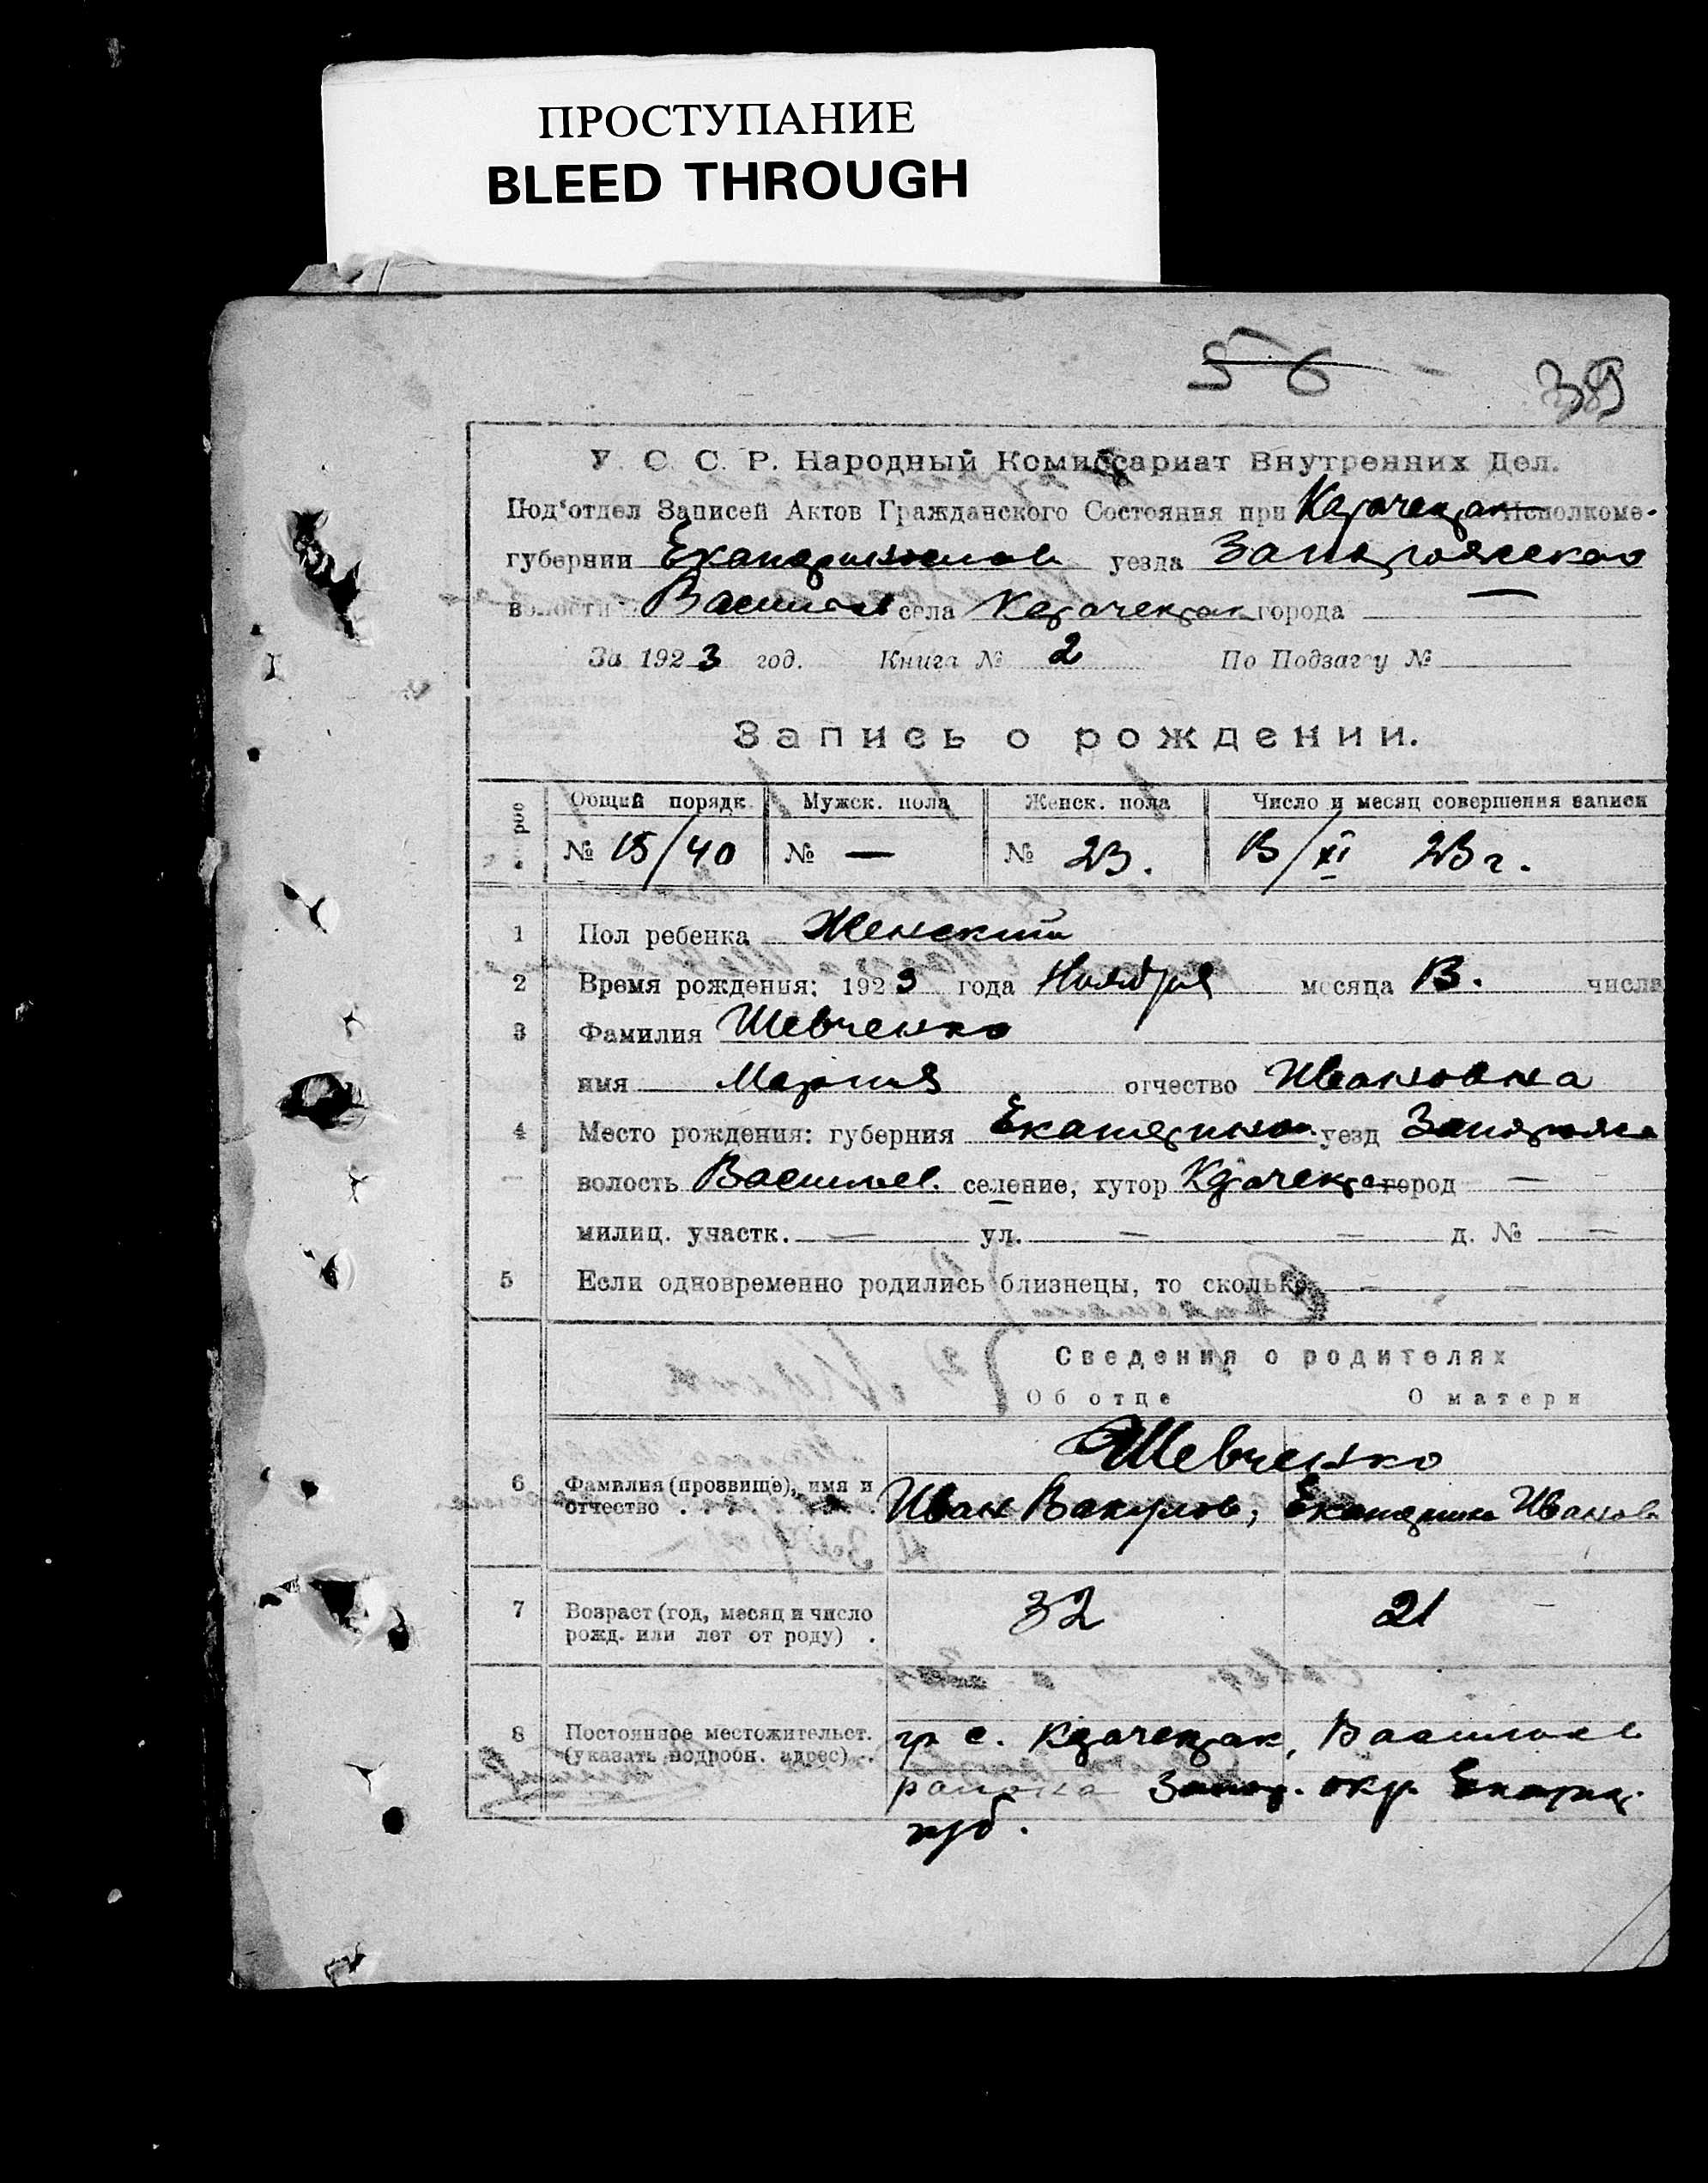 ПРОСТУПАНИЕ
BLEED THROUGH
56 39
У. С. С. Р. Народный Комиссариат Внутренних Дел.
Под'отдел Записей Актов Гражданского Состояния при Исполкоме.
губернии Екатеринослав уезда Запорожского
волости Васильев села города —
За 1923 год. Книга № 2 По Подзагсу №
Запись о рождении.
Общий порядк. Мужск. пола Женск. пола Число и месяц совершения записи
№ 15/40 № — № 23. 13/XI 23 г.
1 Пол ребенка Женский
2 Время рождения: 1923 года Ноября месяца 13. числа
3 Фамилия Шевченко
имя Мария отчество Ивановна
4 Место рождения: губерния Екатерином уезд Запорож
волость Васильев. селение, хутор город —
милиц. участк. — ул. — — д. № —
5 Если одновременно родились близнецы, то сколько — —
Сведения о родителях
Об отце О матери
Шевченко
6 Фамилия (прозвище), имя и Иван Вакулов, Екатерина Иванов
отчество . . . .
7 Возраст (год, месяц и число 32 21
рожд. или лет от роду) .
8 Постоянное местожительст. гр. с. Васильев
(указать подробн. адрес) . . района Запор. окр. Екатер.
губ.